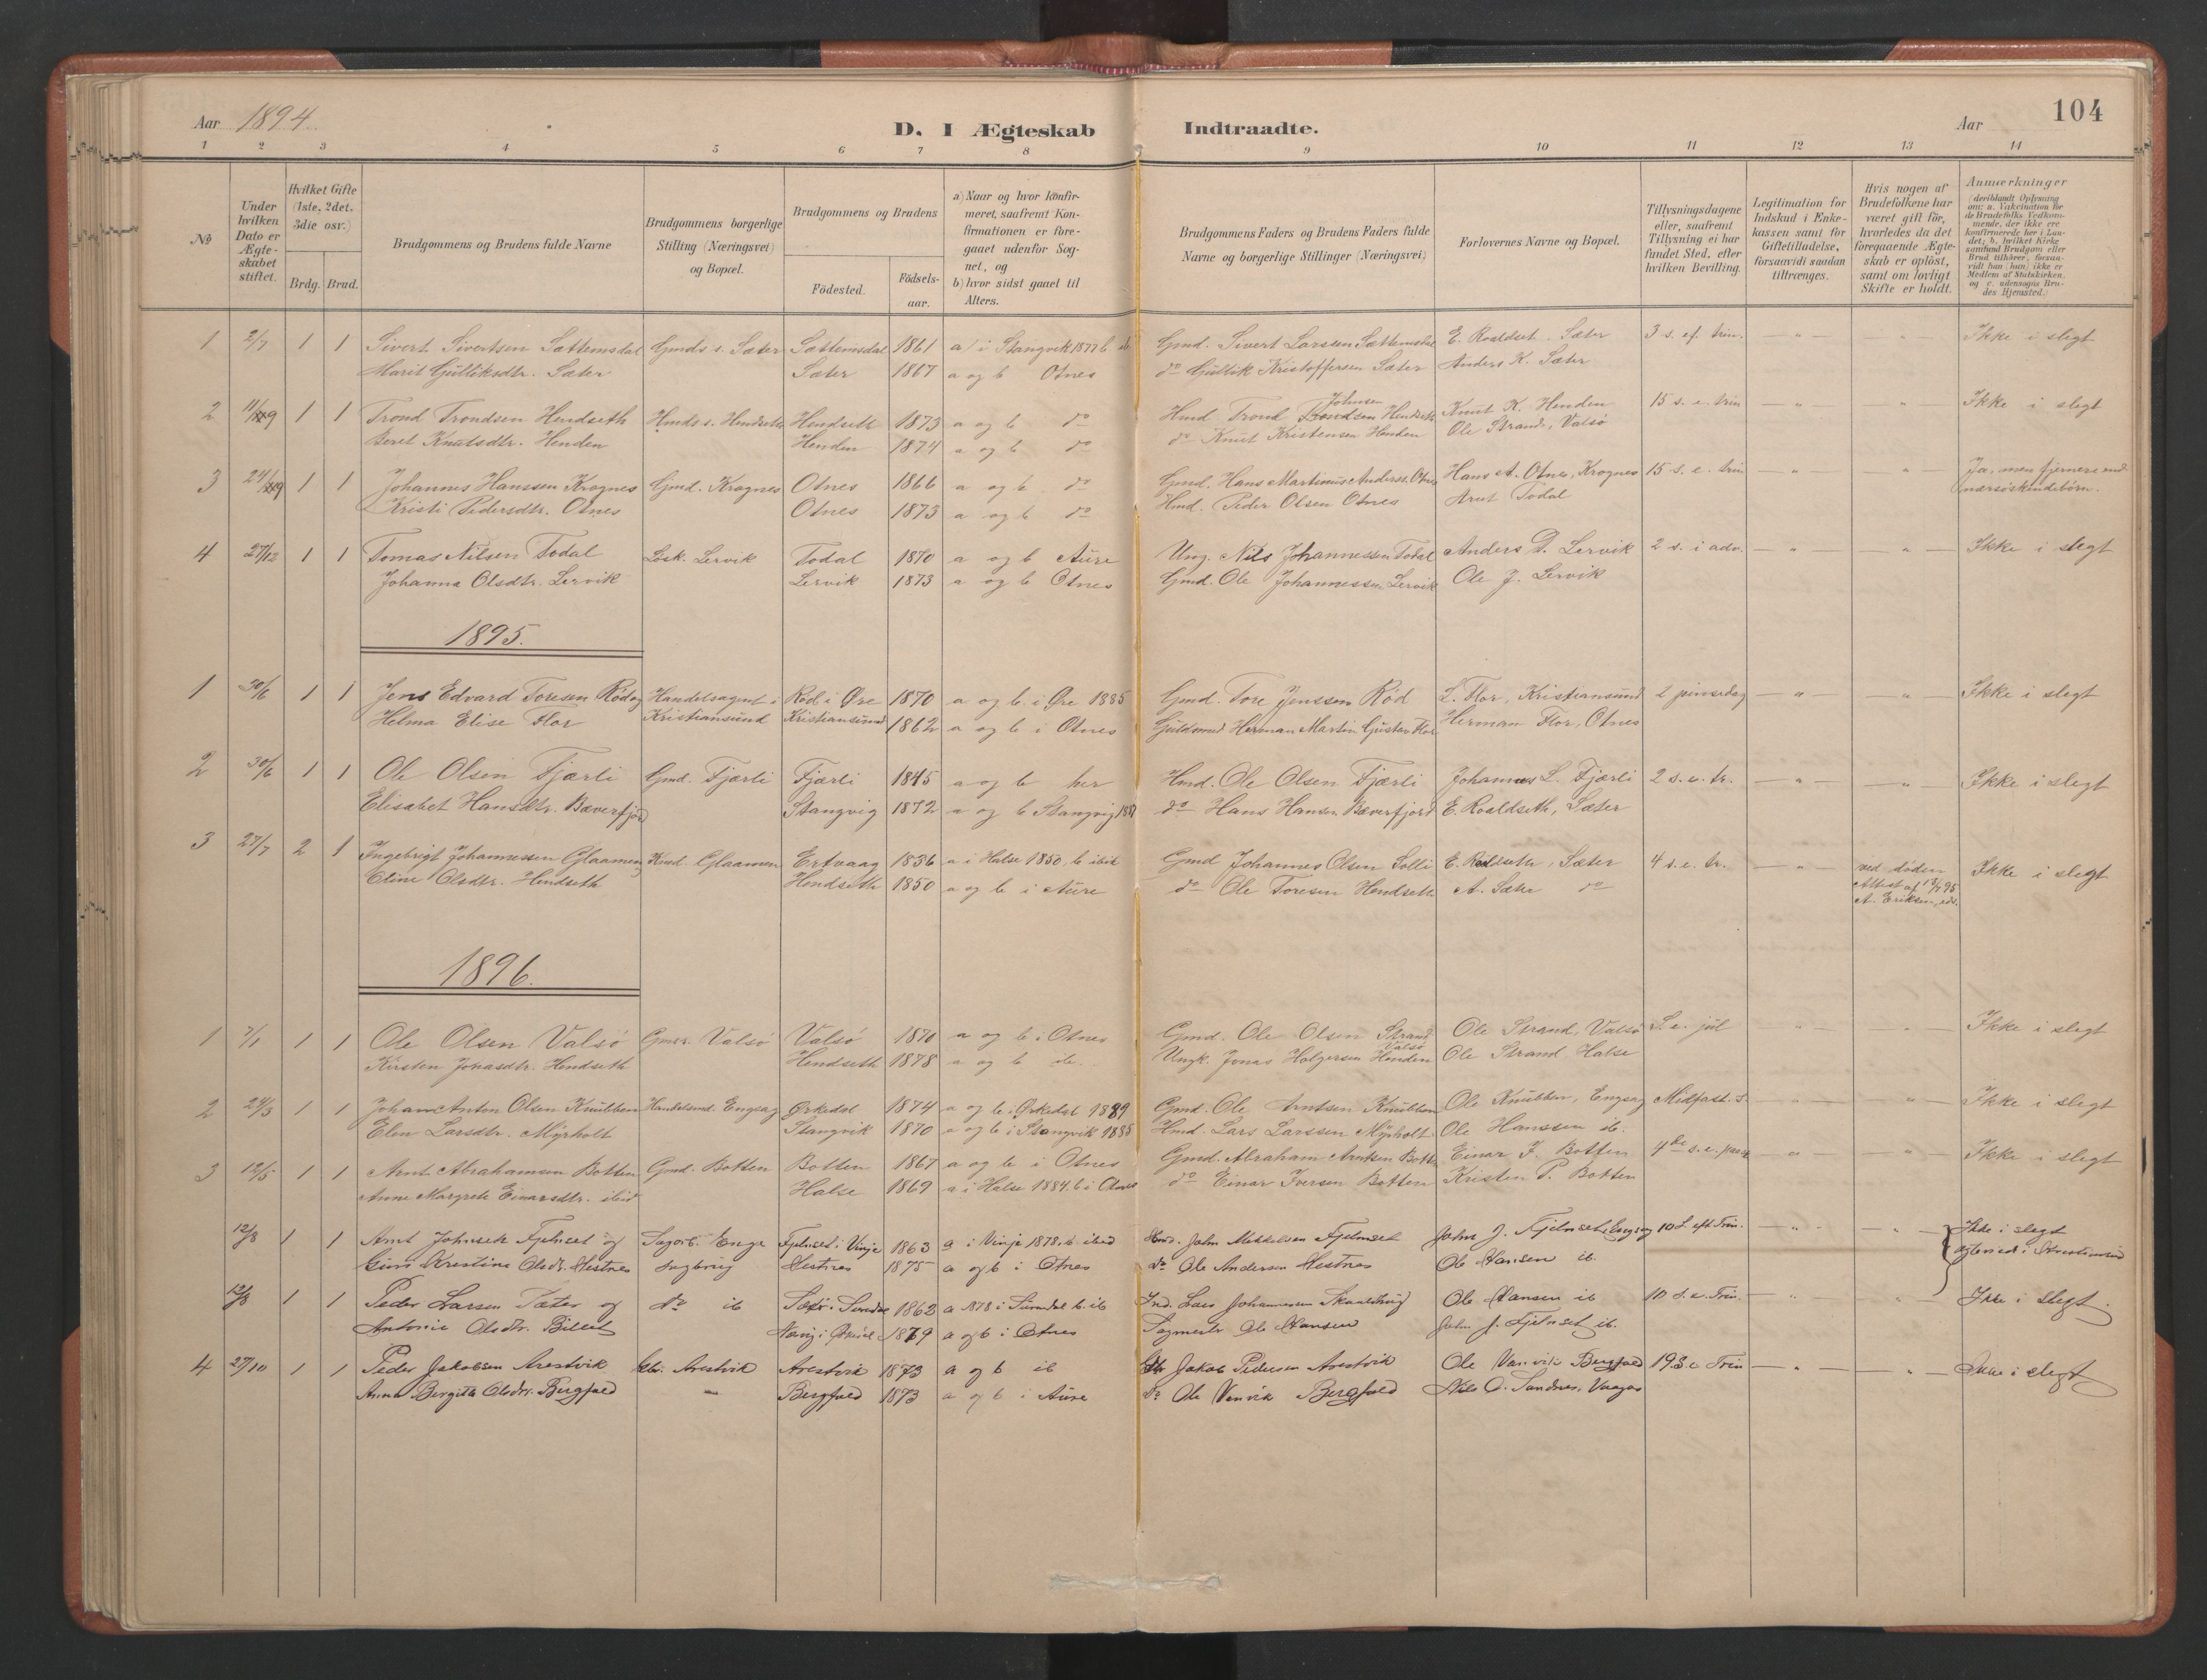 Aar 1894
D. I Ægteskab Indtraadte.
Aar
104
1 2 3 4 5 6 7 8 9 10 11 12 13 14
No
Under hvilken Dato er Ægteskabet stiftet.
Hvilket Gifte (1ste, 2det, 3die osv.)
Brdg. Brud.
Brudgommens og Brudens fulde Navne
Brudgommens borgerlige Stilling (Næringsvei) og Bopæl.
Brudgommens og Brudens
Födested. Födsels-aar.
a) Naar og hvor konfirmeret, saafremt Konfirmationen er foregaaet udenfor Sognet, og
b) hvor sidst gaaet til Alters.
Brudgommens Faders og Brudens Faders fulde Navne og borgerlige Stillinger (Næringsvei)
Forlovernes Navne og Bopæl.
Tillysningsdagene eller, saafremt Tillysning ei har fundet Sted, efter hvilken Bevilling.
Legitimation for Indskud i Enkekassen samt for Giftetilladelse, forsaavidt saadan tiltrænges.
Hvis nogen af Brudefolkene har været gift för, hvorledes da det foregaaende Ægteskab er oplöst, samt om lovligt Skifte er holdt.
Anmærkninger (deriblandt Oplysning om: a. Vakcination for de Brudefolks Vedkommende, der ikke ere konfirmerede her i Landet; b. hvilket Kirkesamfund Brudgom eller Brud tilhører, forsaavidt han (hun) ikke er Medlem af Statskirken, og c. udensogns Brudes Hjemsted.)
1 2/7 1 1 Sivert Sivertsen Sættemsdal Gmds s. Sæter Sættemsdal 1861 a) i Stangvik 1877 b ib Gmd. Sivert Larsen Sættemsdal E. Roaldset, Sæter 3 s. ef. trin. — " — — " — Ikke i slegt
Marit Gulliksdtr. Sæter Sæter 1867 a og b Otnes do Gullik Kristoffersen Sæter Anders K. Sæter
2 11/9 1 1 Trond Trondsen Hendseth Hmds s. Hendseth Hendseth 1873 a og b do Hmd. Trond Johnsen Hendseth Knut K. Henden 15 s. e. trin — " — " — Ikke i slegt
Beret Knutsdtr. Henden Henden 1874 a og b do do Knut Kristensen Henden Ole Strand, Valsø
3 24/9 1 1 Johannes Hanssen Krognes Gmd. Krognes Otnes 1866 a og b do Gmd. Hans Martinus Anderss. Otnes Hans A. Otnes, Krognes 15 s. e. trin — " — " — Ja, men fjernere end
Kristi Pedersdtr. Otnes Otnes 1873 a og b do Hmd. Peder Olsen Otnes Arnt Todal nærsøskendebørn.
4 27/12 1 1 Tomas Nilsen Todal Løsk. Lervik Todal 1870 a og b Aure Ung. Nils Johannessen Todal Anders D. Lervik 2 s. i adv. — " — " — Ikke i slegt
Johanna Olsdtr. Lervik Lervik 1873 a og b Otnes Gmd. Ole Johannessen Lervik Ole J. Lervik
1895.
1 30/6 1 1 Jens Edvard Toresen Rød og Handelsagent i Rød i Øre 1870 a og b. i Øre 1885 Gmd. Tore Jenssen Rød L. Flor, Kristiansund 2 pinsedag — " — " — Ikke i slegt
Helma Elise Flor Kristiansund Kristiansund 1862 a og b i Otnes Guldsmed Herman Martin Gustav Flor Herman Flor, Otnes
2 30/6 1 1 Ole Olsen Fjærli Gmd. Fjærli Fjærli 1845 a og b her Hmd. Ole Olsen Fjærli Johannes L. Fjærli 2 s. e. tr. — " — " — Ikke i slegt
Elisabet Hansdtr. Bæverfjord Stangvig 1872 a og b Stangvig do Hans Hansen Bæverfjord E. Roaldseth, Sæter
3 27/7 2 1 Ingebrigt Johannessen Glaamen Kmd. Glaamen Ertvaag 1836 a i Halse 1850, b ibid Gmd Johannes Olsen Solli E. Roaldseth, Sæter 4 s. e. tr. — " — ved døden Ikke i slegt
Eline Olsdtr. Hendseth Hendseth 1850 a og b i Aure do Ole Toresen Hendseth A. Sæter do Attest af 13/7 95
A. Eriksen, eds.
1896.
1 7/1 1 1 Ole Olsen Valsø Gmd. Valsø Valsø 1870 a og b i Otnes Gmd. Ole Olsen Strand Valsø Ole Strand, Valsø S. e. jul " " Ikke i slegt
Kirsten Jonasdtr. Hendseth Hendseth 1878 a og b do. Ungk. Jonas Holgersen Henden Ole Strand, Halse
2 24/3 1 1 Johan Anton Olsen Knubben Handelsmd. Engsag Ørkedal 1874 a og b i Ørkedal 1889 Gmd. Ole Arntsen Knubben Ole Knubben, Engsag Midfast. s. — " — " — Ikke i slegt
Elen Larsdtr. Myrholt Stangvik 1870 a og b i Stangvik 1885 Hmd. Lars Larssen Myrholt Ole Hanssen ib.
3 12/5 1 1 Arnt Abrahamsen Botten Gmd. Botten Botten 1867 a og b i Otnes Gmd. Abraham Arntsen Botten Einar I. Botten 4de s. e. paas — " — " — Ikke i slegt
Anne Margrete Einarsdtr. ibid Halse 1869 a i Halse 1884. b i Otnes do Einar Iversen Botten Kristen P. Botten
12/8 1 1 Arnt Johnsen Fjelnset og Sagarb. Enge Fjelnset i Vinje 1863 a i Vinje 1878, b ibid Hmd. John Mikkelsen Fjelnset John J. Fjelnset, Engsag 10 S. eft Trin. — " — " — Ikke i slegt
Guri Kristine Olsdt. Hestnes sagbrug Hestnes 1875 a og b i Otnes do Ole Andersen Hestnes Ole Hansen ib. i Kristiansund
12/8 1 1 Peder Larsen Sæter og do ib 1862 a 1878 i Surendal b. ib Lars Johannesen Ole Hansen ib 10 S. e. Trin. — " — " — Ikke i slegt.
Antonie Olsdtr. 1879 a og b i Otnes Sagmestr. Ole Hansen John J. Fjelnset ib.
4 27/10 1 1 Peder Jakobsen Arestvik Gbr. Arestvik Arestvik 1873 a og b ib Gbr Jakob Pedersen Arestvik Ole Venvik Bergfald 19 S. e Trin — " — " — Ikke i slegt
Anna Bergitte Olsdtr. Bergfald — Bergfald 1873 a og b i Aure do Ole Venvik Bergfald Nils O. Sandnes, Vaagos